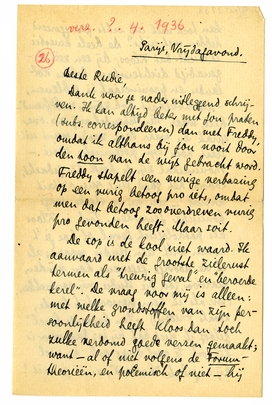 verz. ?. 4. 1936
26
Parijs, Vrijdagavond.
Beste Rudie,
Dank voor je nader uitleggend schrij-
ven. Ik kan altijd beter met jou praten
(subs. correspondeeren) dan met Freddy,
omdat ik althans bij jou nooit door
den toon van de wijs gebracht word.
Freddy stapelt een vurige verbazing
op een vurig betoog pro iets, omdat
men dat betoog zoo overdreven vurig
pro gevonden heeft. Maar soit.
De sop is de kool niet waard. Ik
aanvaard met de grootste zielerust
termen als "treurig geval" en "beroerde
kerel". De vraag voor mij is alleen:
met welke grondstoffen van zijn per-
soonlijkheid heeft Kloos dan toch
zulke verdomd goede verzen gemaakt;
want – al of niet volgens de Forum-
theorieën, en polemisch of niet – hij